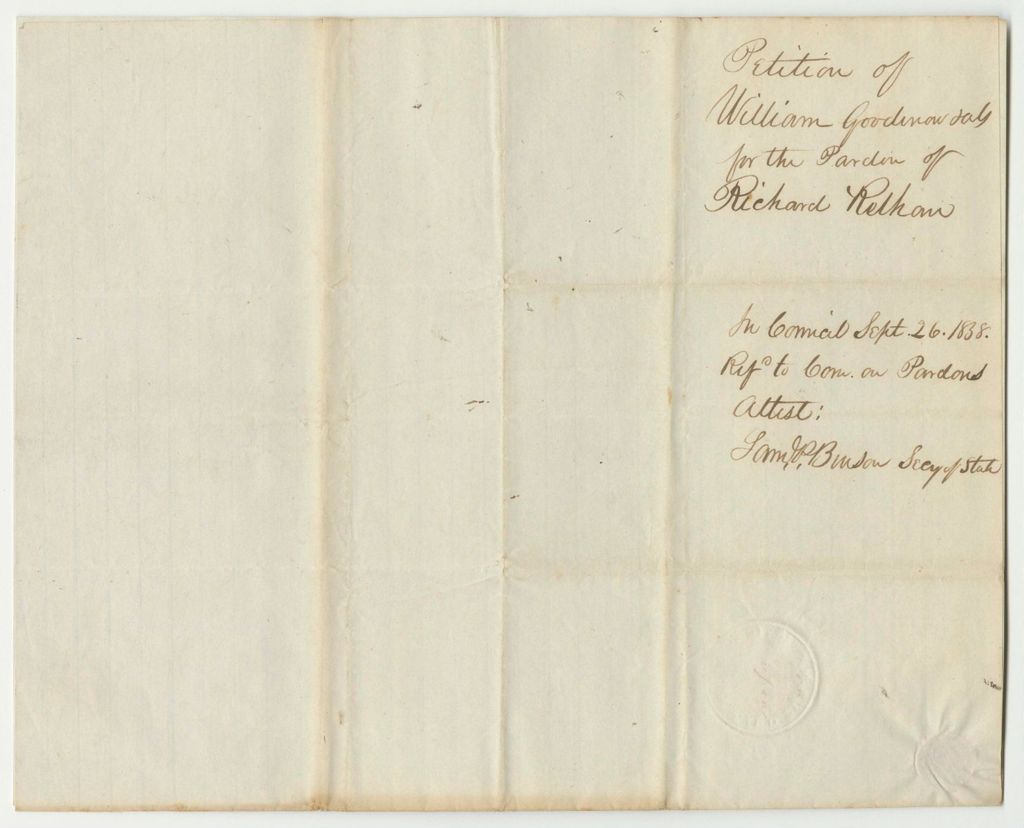 Petition of
William Goodenow & als
for the Pardon of
Richard Relhan
In Council Sept. 26. 1838.
Refd to Com. on Pardons
Attest:
Saml. P. Benson Secy of State